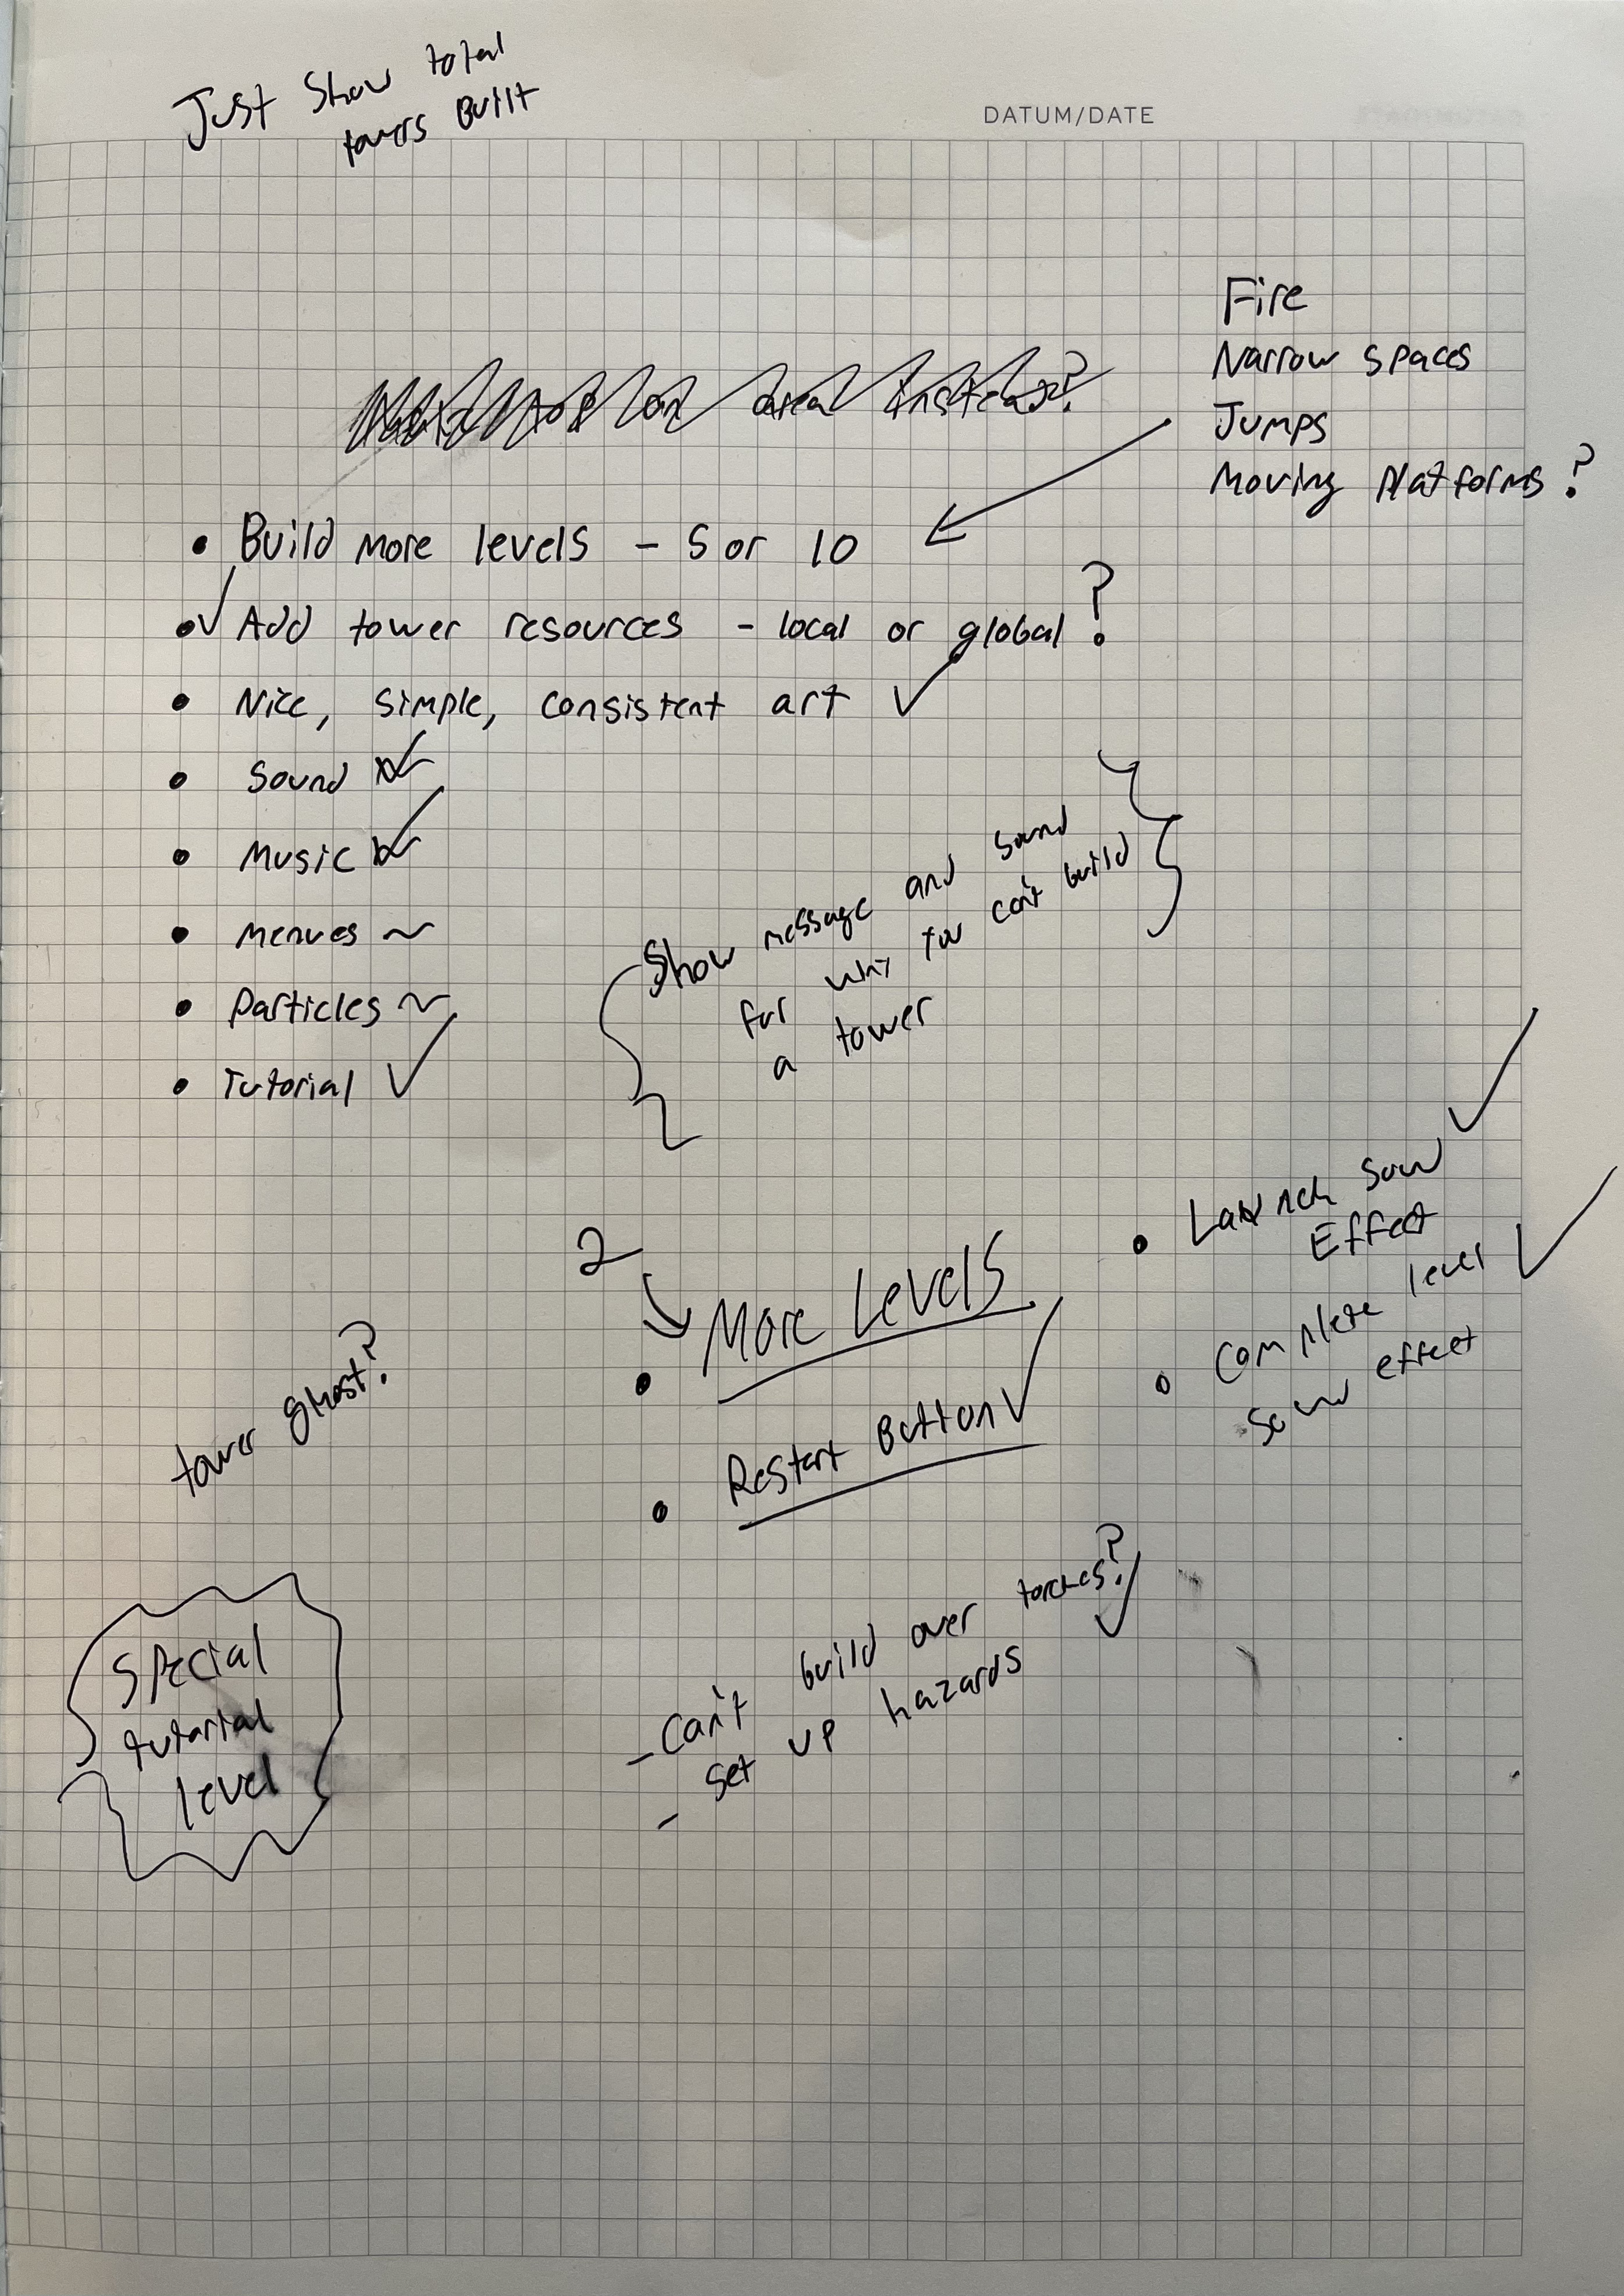 Just Show total
towers Built
DATUM/DATE
Fire
Narrow spaces
Jumps
Moving Platforms?
on area instead?
• Build more levels - 5 or 10
• ✓ Add tower resources - local or global?
• Nice, simple, consistent art ✓
• Sound ✓
• Music ✓
• Menues ~
• Particles ~
• Tutorial ✓
Show message and sound
for why you can't build
a tower
• Launch Sound
Effect ✓
• Complete level
sound effect ✓
2
• More Levels
• Restart Button ✓
tower ghost?
- Can't build over torches? ✓
- Set up hazards
Special
tutorial
level